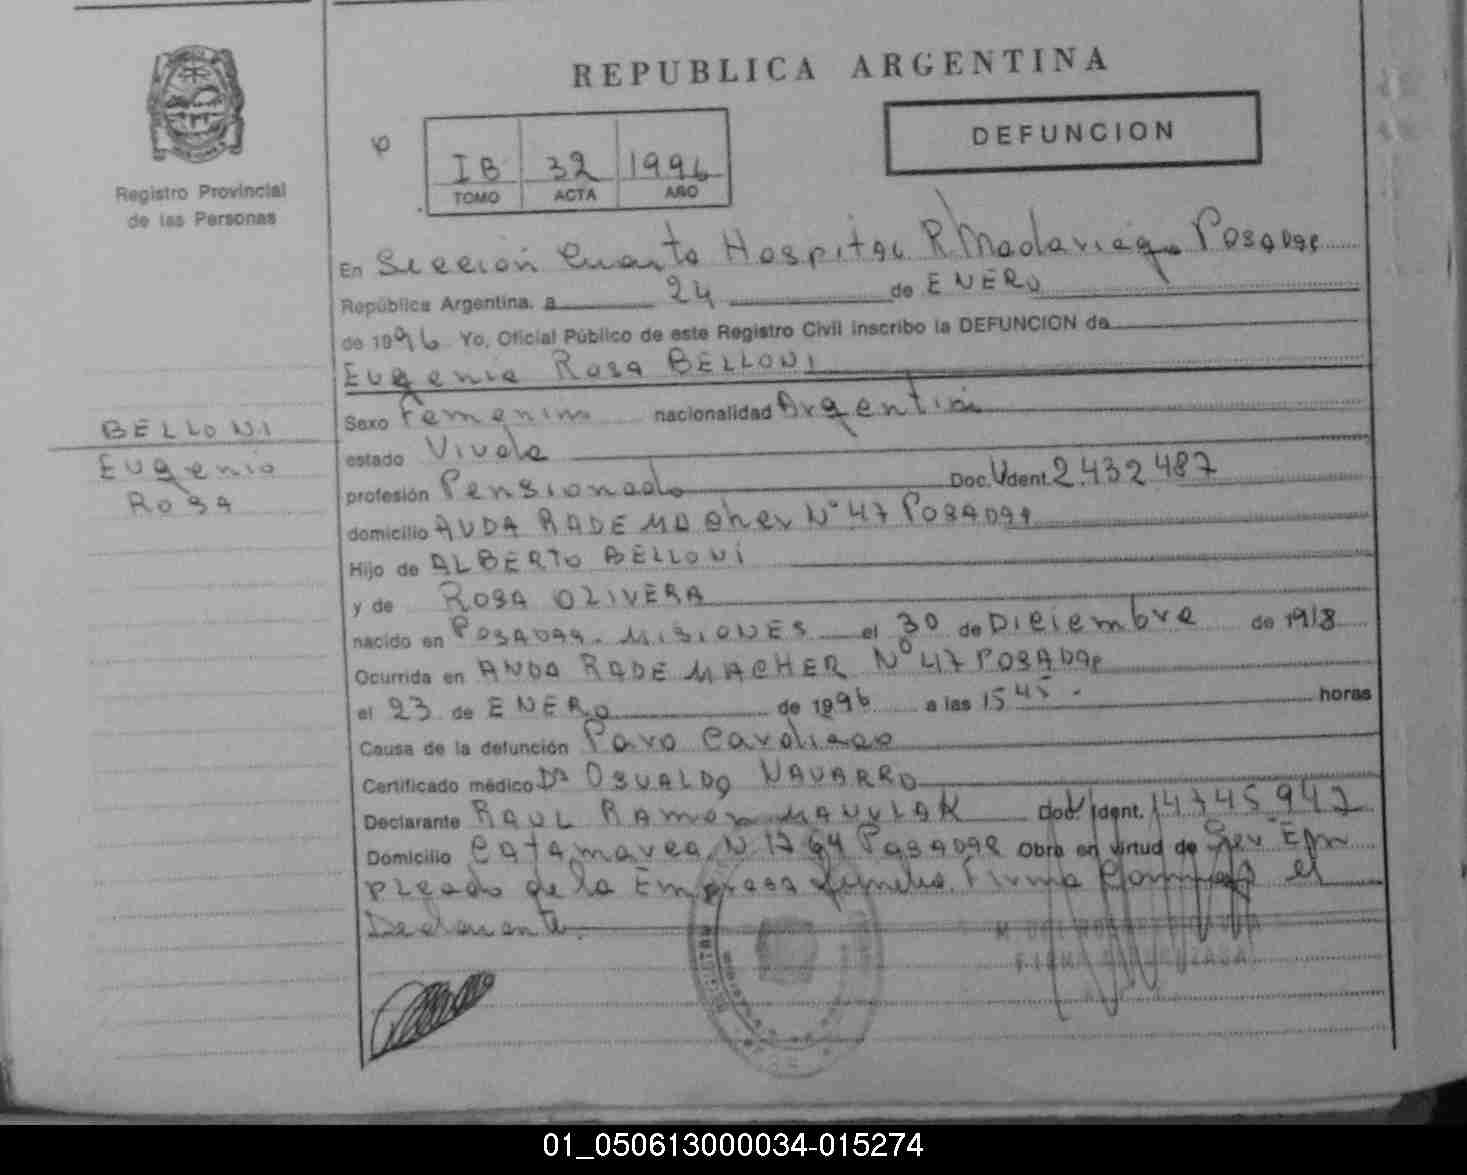 REPUBLICA ARGENTINA
DEFUNCION
IB 32 1996
TOMO ACTA AÑO
Registro Provincial
de las Personas
En Sección Cuarta Hospital R. Madariaga Posadas
República Argentina, a 24 de ENERO
de 1996 Yo, Oficial Público de este Registro Civil inscribo la DEFUNCION de
Eugenia Rosa BELLONI
BELLONI
Eugenia
Rosa
Sexo Femenino nacionalidad Argentina
estado Viuda
profesión Pensionada Doc. Ident. 2.432487
domicilio AVDA RADEMAcher N° 47 POSADAS
Hijo de ALBERTO BELLONI
y de ROSA OLIVERA
nacido en POSADAS - MISIONES el 30 de Diciembre de 1918
Ocurrida en AVDA RADEMACHER N° 47 POSADAS
el 23 de ENERO de 1996 a las 15 45 horas
Causa de la defunción Paro Cardiaco
Certificado médico Dr OSVALDO NAVARRO
Declarante RAUL RAMON Doc. Ident. 14745942
Domicilio Catamarca N 1764 Posadas Obra en virtud de Ser Em
pleado de la Empresa Firma el
Declarante.
01_050613000034-015274